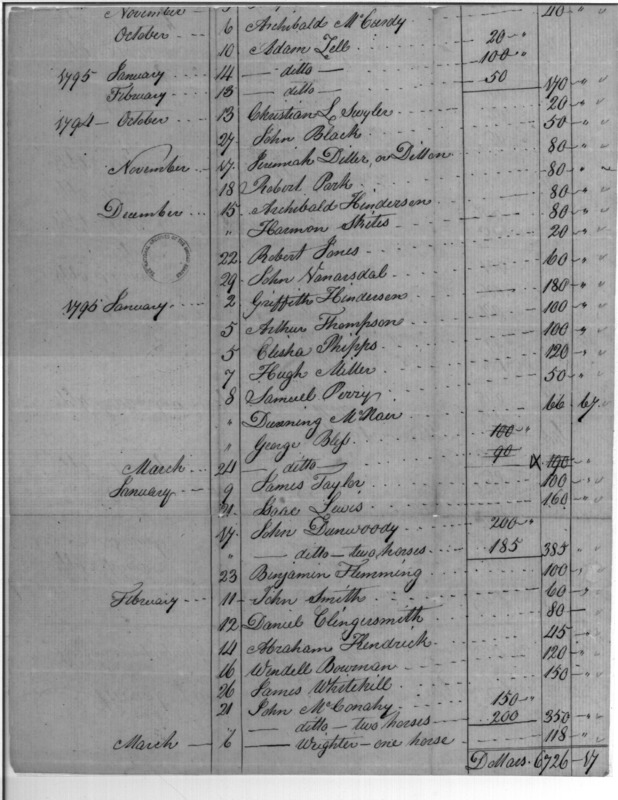 November 5 40 "
October 6 Archibald McCurdy
10 Adam Zell 20 "
1795 January 14 ditto 100 "
February 13 ditto 50 170 " "
1794 October 13 Christian L Swyler 20 " "
27 John Black 50 " "
November 17 Jeremiah Diller, or Detton 80 " "
18 Robert Park 80 "
December 15 Archibald Henderson 80 " "
" Harmon Skiles 80 " "
22 Robert Jones 20 " "
29 John Vanarsdal 60 " "
1795 January 2 Griffith Henderson 180 " "
5 Arthur Thompson 100 " "
5 Elisha Phipps 100 " "
7 Hugh Miller 120 "
8 Samuel Perry 50 " "
" Dunning McNair 66 67
" George Bless 100 "
March 24 ditto 90 X 190 "
January 9 James Taylor 100 " "
21 Isaac Lewis 160 " "
17 John Dunwoody 200 "
" ditto - two horses 185 385 "
23 Benjamin Flemming 100 "
February 11 John Smith 60 "
12 Daniel Clingersmith 80
14 Abraham Kendrick 45 "
16 Windell Bowman 120 "
26 James Whitehill 150 "
21 John McConahy 150 "
ditto - two horses 200 350 "
March 6 Wrighter - one horse 118 "
Dollars. 6726 - 17